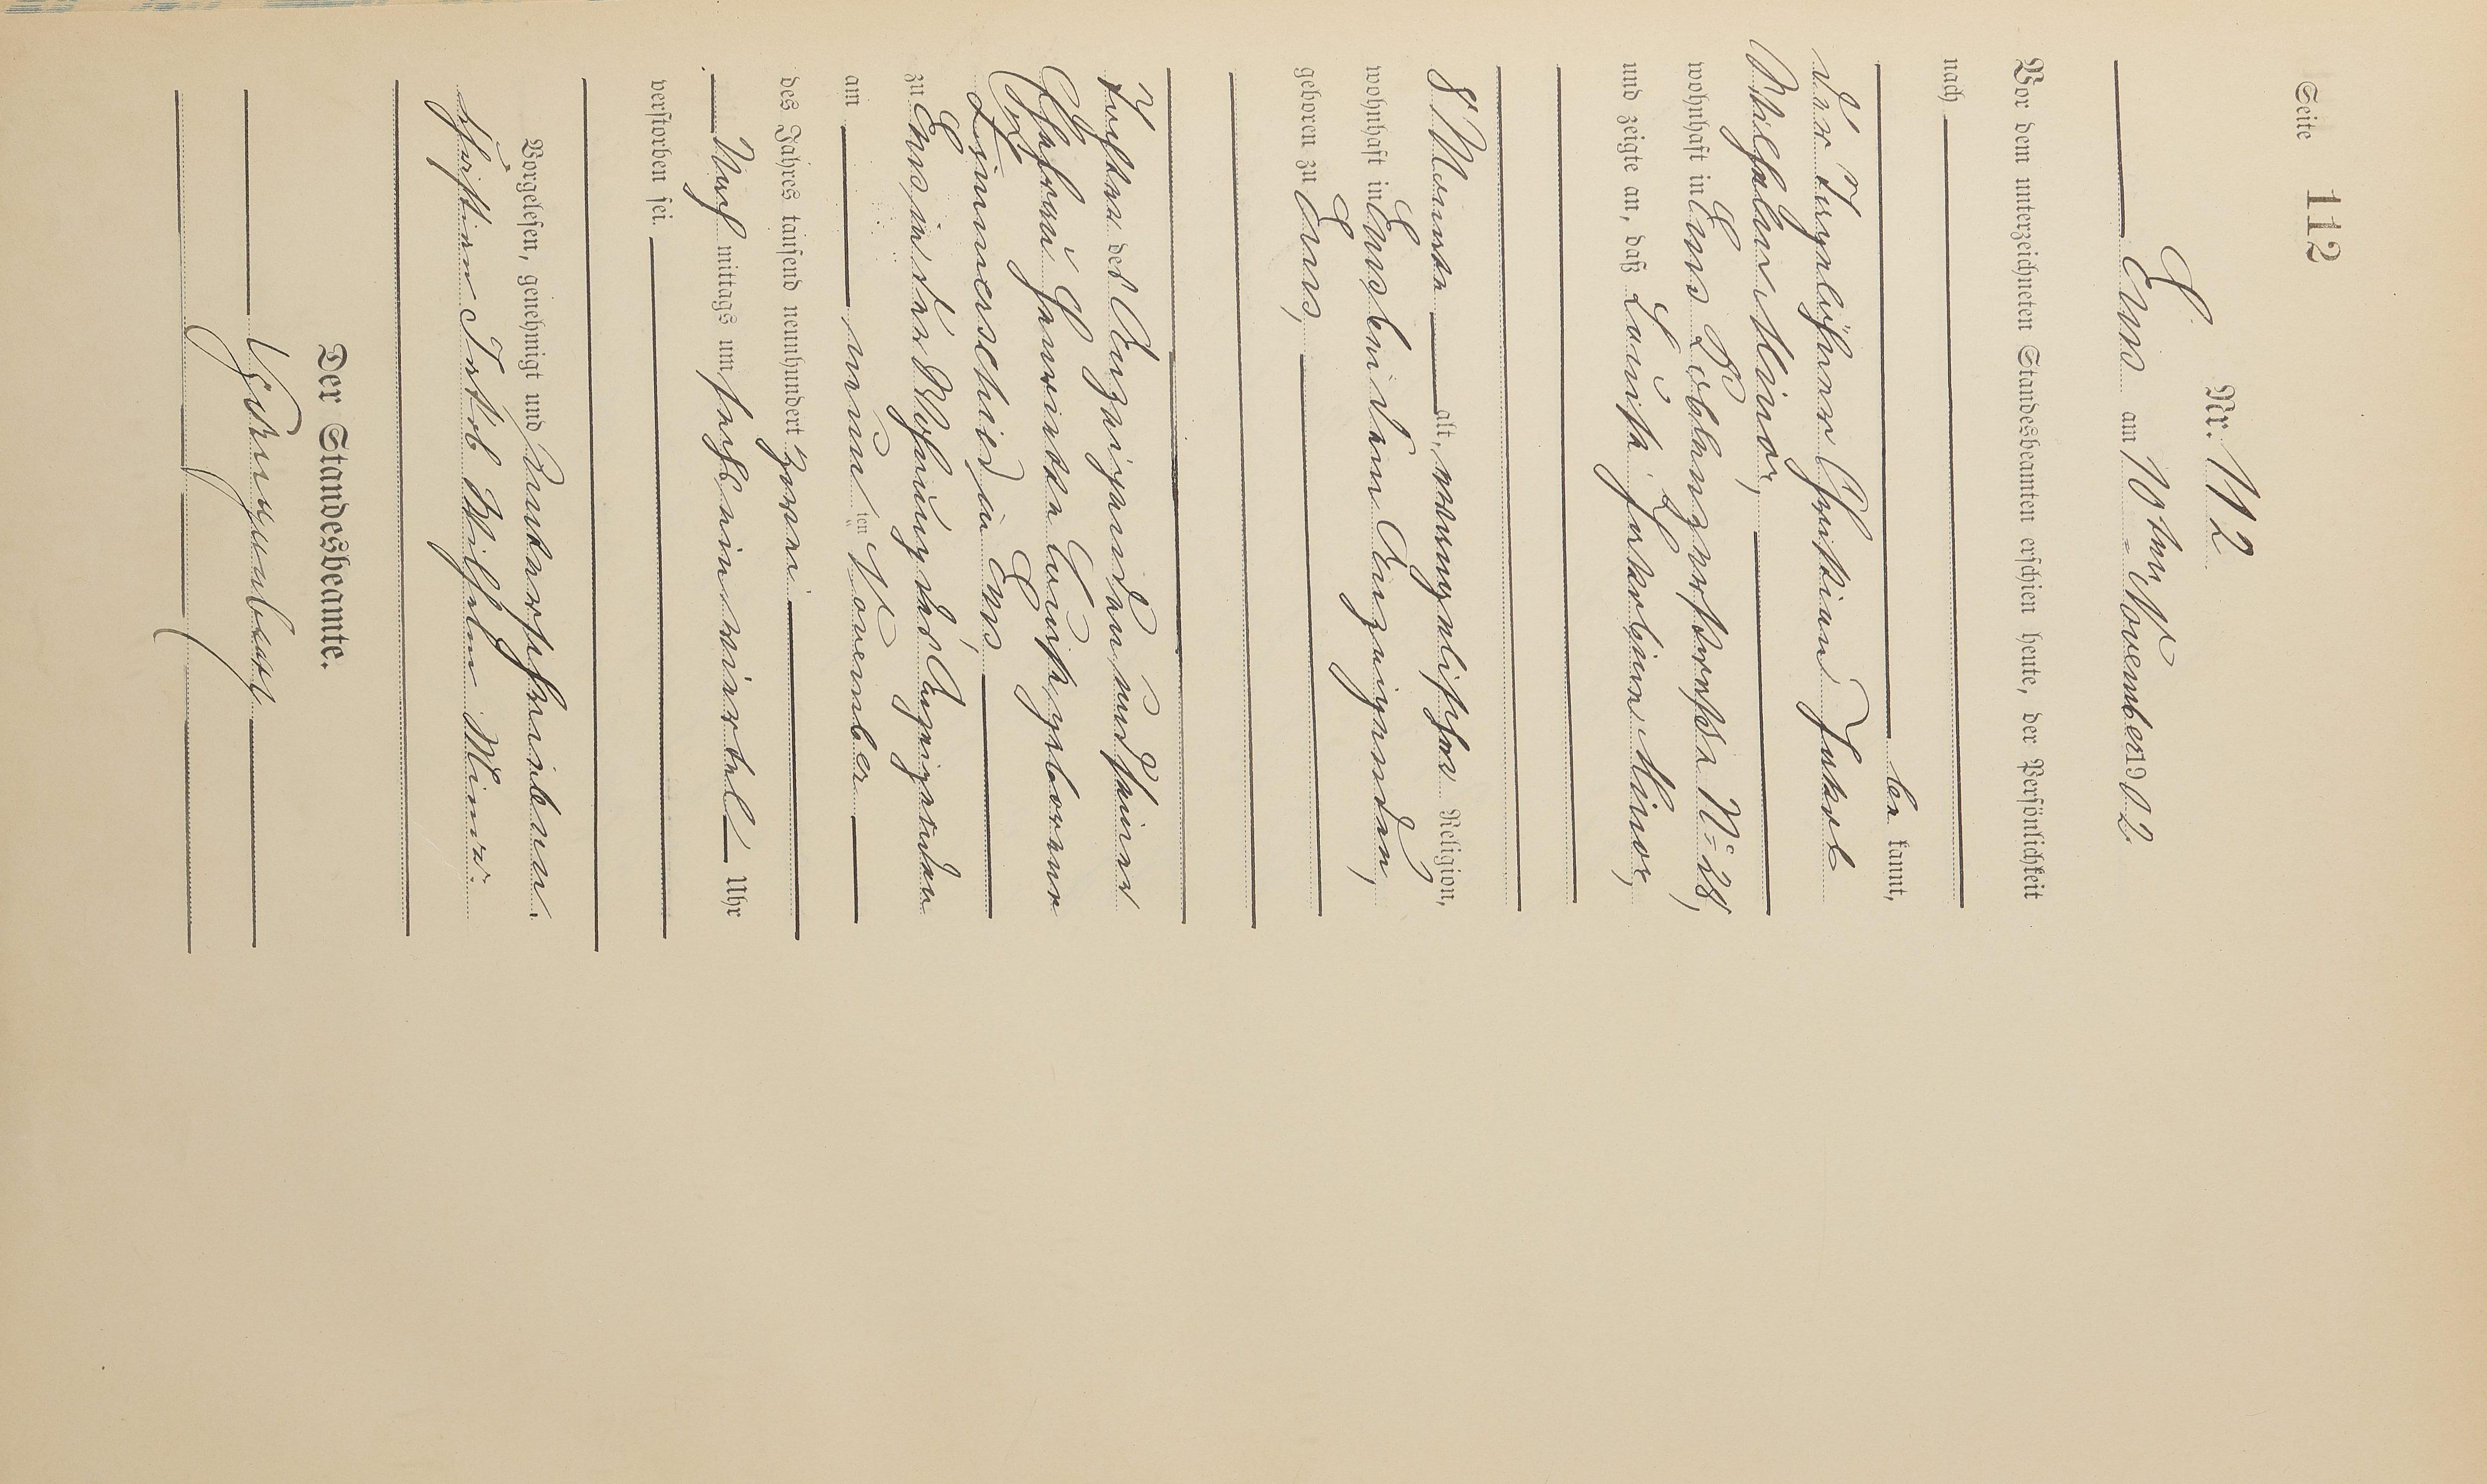 Seite 112
Nr. 112
Ems am 10ten November 1902.
Vor dem unterzeichneten Standesbeamten erschien heute, der Persönlichkeit
nach
be kannt,
der Tagelöhner Christian Jakob
Wilhelm Minor,
wohnhaft in Ems Coblenzerstraße No 28,
und zeigte an, daß Louise Jakobine Minor,
8 Monate alt, evangelischer Religion,
wohnhaft in Ems bei dem Anzeigenden,
geboren zu Ems,
Tochter des Anzeigenden und seiner
Ehefrau Henriette Louise geborenen
Zimmerschied in Ems,
zu Ems in der Wohnung des Anzeigenden
am neun ten November
des Jahres tausend neunhundert zwei
Nach mittags um sechs ein viertel Uhr
verstorben sei.
Vorgelesen, genehmigt und unterschrieben.
Christian Jakob Wilhelm Minor.
Der Standesbeamte.